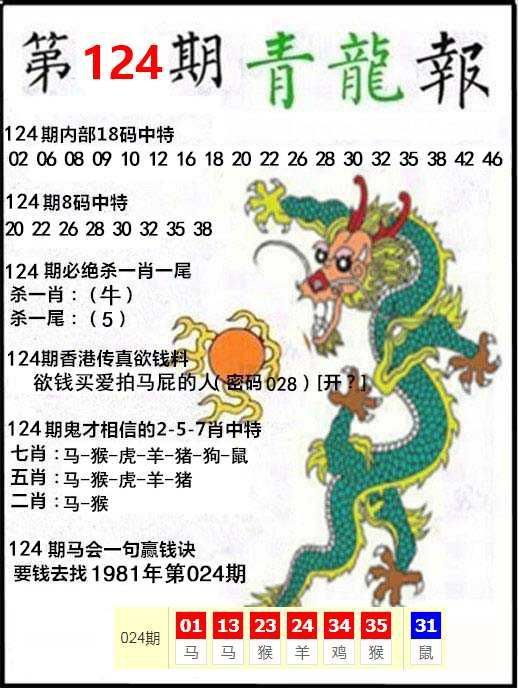 第124期 青龍報
124期内部18码中特
02 06 08 09 10 12 16 18 20 22 26 28 30 32 35 38 42 46
124期8码中特
20 22 26 28 30 32 35 38
124期必绝杀一肖一尾
杀一肖：（牛）
杀一尾：（5）
124期香港传真欲钱料
欲钱买爱拍马屁的人（密码028）[开？]
124期鬼才相信的2-5-7肖中特
七肖：马-猴-虎-羊-猪-狗-鼠
五肖：马-猴-虎-羊-猪
二肖：马-猴
124期马会一句赢钱诀
要钱去找1981年第024期
024期 01 13 23 24 34 35 31
马 马 猴 羊 鸡 猴 鼠